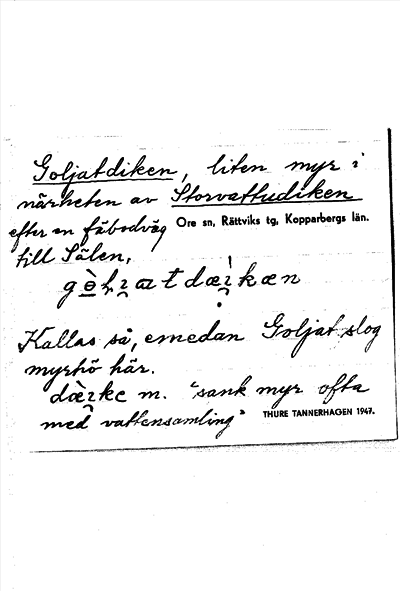 Goljatdiken, liten myr i
närheten av Storvattudiken
efter en fäbodväg Ore sn, Rättviks tg, Kopparbergs län.
till Sälen.
Kallas så, emedan Goljat slog
myrhö här.
m. "sank myr ofta
med vattensamling" THURE TANNERHAGEN 1947.